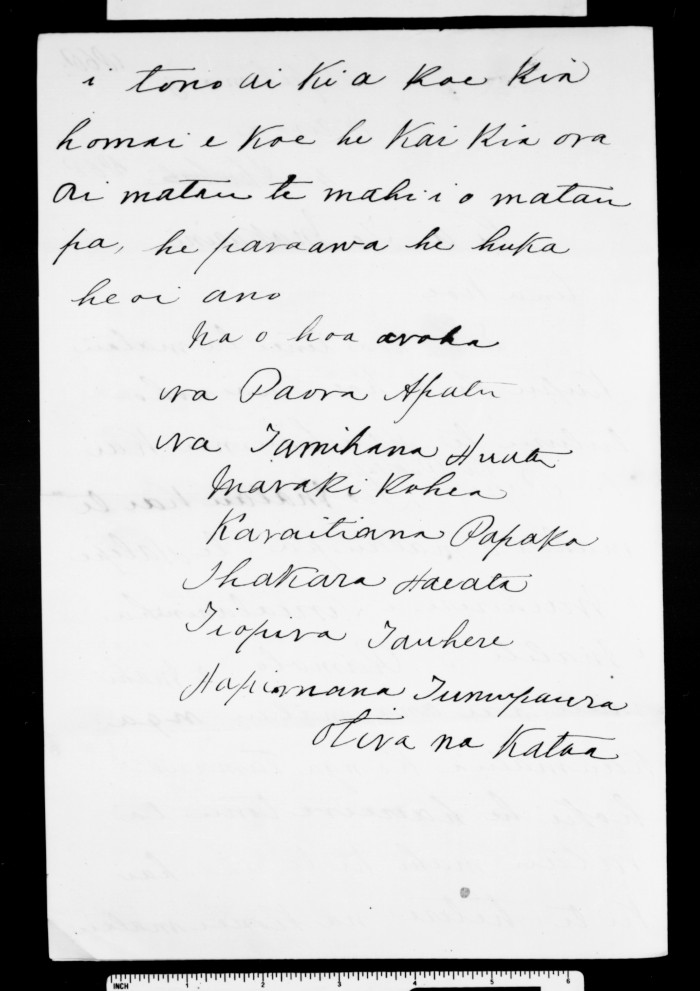 i tono ai ki a koe kia
homai e koe he kai kia ora
ai matau te mahi i o matau
pa, he paraawa he huka
heoi ano
Na o hoa aroha
na Paora Apatu
na Tamihana Huata
Maraki Kohea
Karaitiana Papaka
Ihakara Haeata
Tiopira Tauhere
Hapimana Tunupaura
Otira na Katoa
INCH 1 2 3 4 5 6